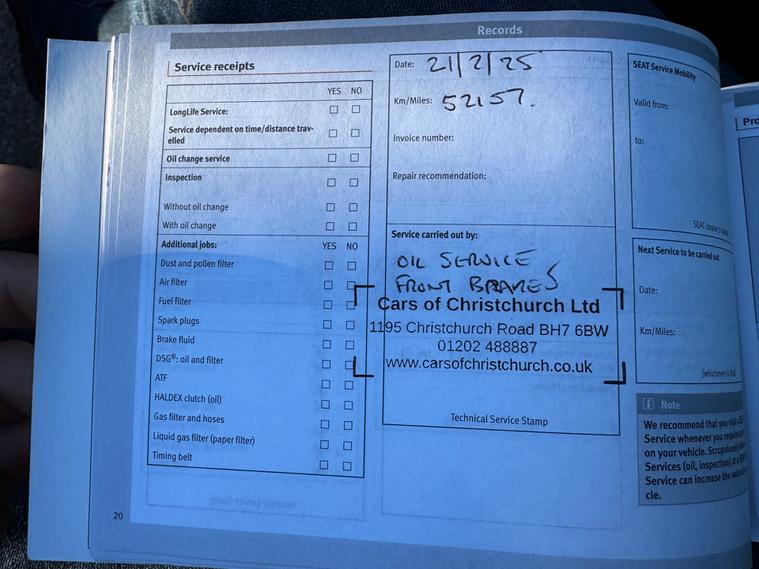 Records
Service receipts
YES NO
LongLife Service:
Service dependent on time/distance trav-
elled
Oil change service
Inspection
Without oil change
With oil change
Additional jobs: YES NO
Dust and pollen filter
Air filter
Fuel filter
Spark plugs
Brake fluid
DSG®: oil and filter
ATF
HALDEX clutch (oil)
Gas filter and hoses
Liquid gas filter (paper filter)
Timing belt
20
Date: 21/2/25
Km/Miles: 52157.
Invoice number:
Repair recommendation:
Service carried out by:
OIL SERVICE
FRONT BRAKES
Cars of Christchurch Ltd
1195 Christchurch Road BH7 6BW
01202 488887
www.carsofchristchurch.co.uk
Technical Service Stamp
SEAT Service Mobility
Valid from:
to:
SEAT dealer's
Next Service to be carried out
Date:
Km/Miles:
(whichever is first)
i Note
We recommend that you
Service whenever you require
on your vehicle. Scrupulously
Services (oil, inspection) at a
Service can increase the value
cle.
Pro